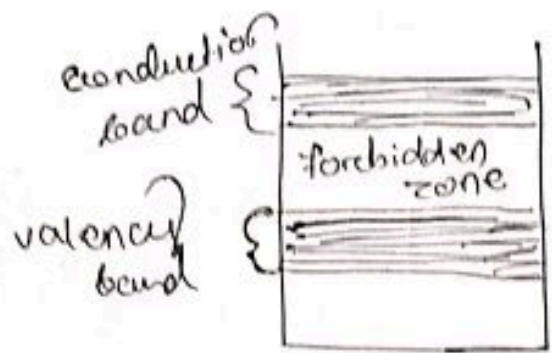 conduction
band
forbidden
zone
valency
band